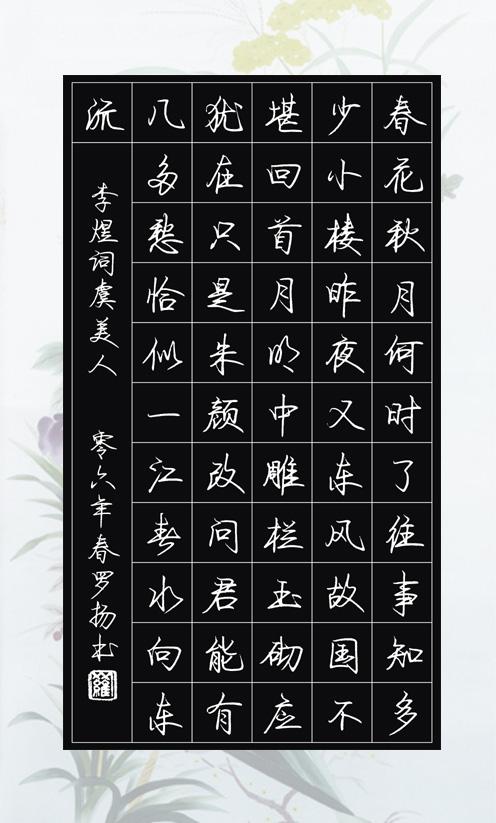 春花秋月何时了往事知多
少小楼昨夜又东风故国不
堪回首月明中雕栏玉砌应
犹在只是朱颜改问君能有
几多愁恰似一江春水向东
流
李煜词虞美人 零六年春罗扬书
羅